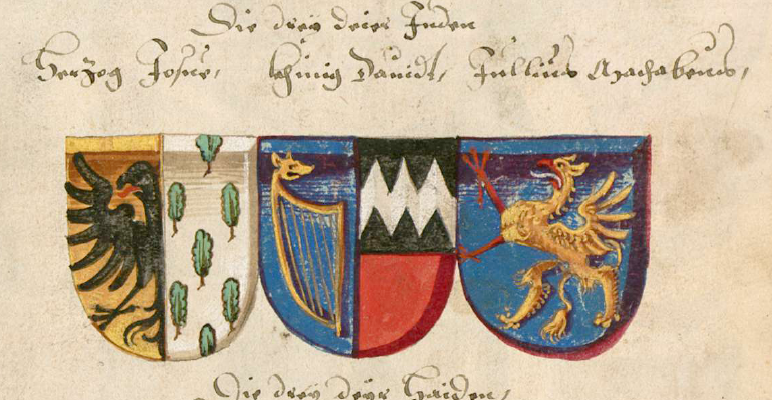 Die drey deier Juden
Herzog Josue, khinig Dauidt, Jullius Machabeus,
Die drey deyr Haiden,